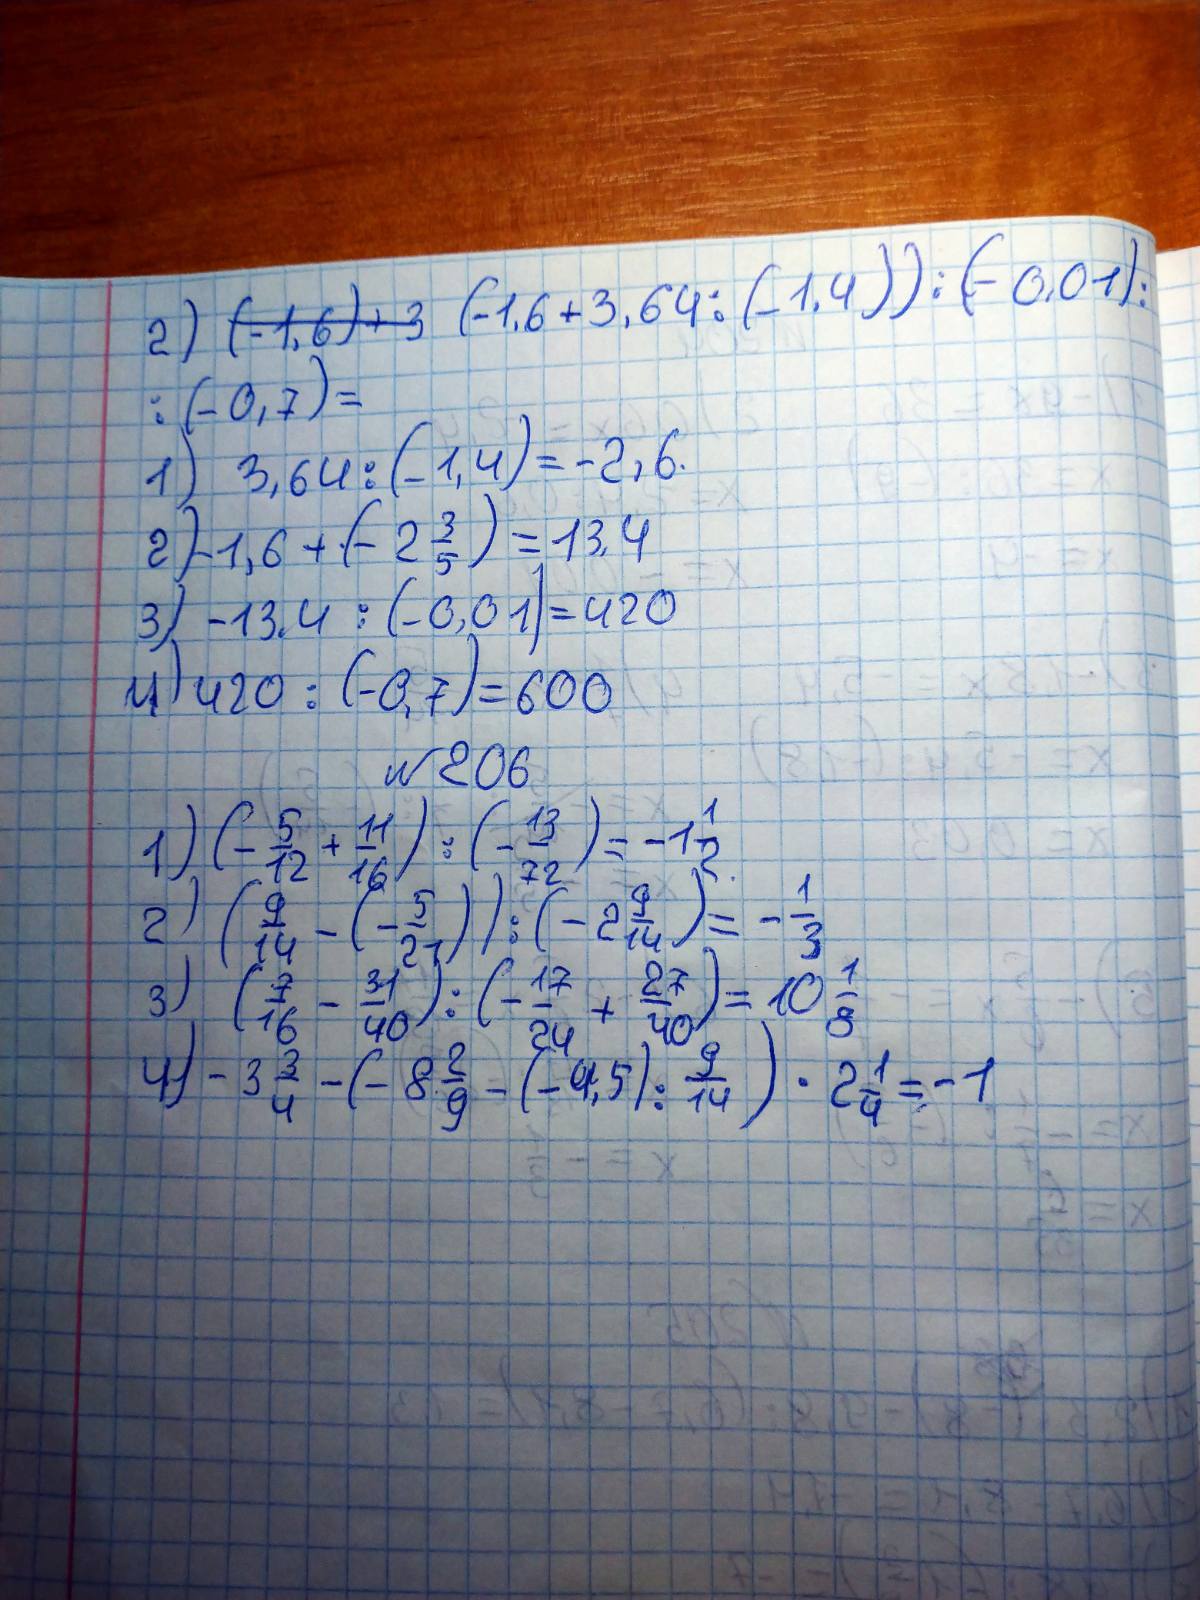 2) (-1,6)+3 (-1,6+3,64:(-1,4)):(-0,01):
:(-0,7)=
1) 3,64:(-1,4)=-2,6.
2)-1,6+(-2 3/5)=13.4
3) -13.4 :(-0,01)=420
4) 420:(-0,7)=600
№206
1) (-5/12+11/16):(-13/72)=-1 1/2.
2) (9/14-(-5/21)):(-2 9/14)=-1/3
3) (7/16-31/40):(-17/24+27/40)=10 1/8
4) -3 3/4-(-8 2/9-(-4,5):9/14)·2 1/4=-1